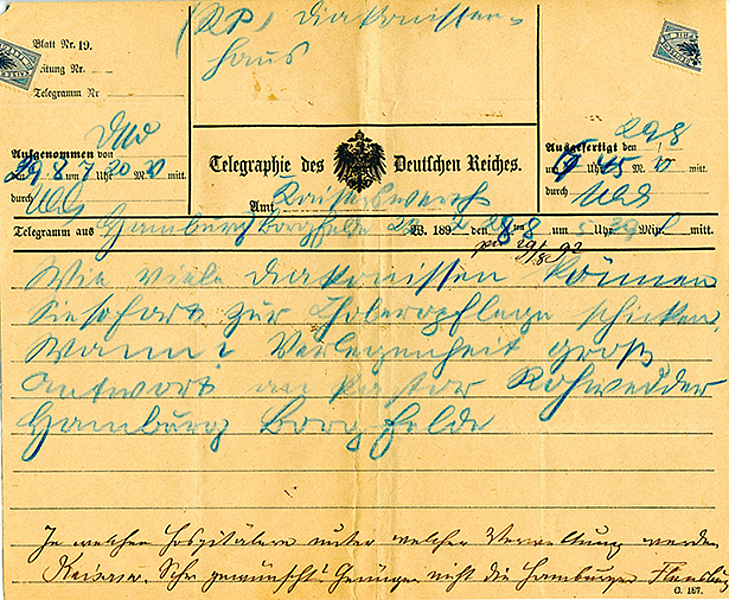 (RP) Diakonissen-
haus
Blatt Nr. 19.
Leitung Nr.
Telegramm Nr
Aufgenommen von
29 8 um 7 Uhr 20 M. mitt.
durch
Telegraphie des Deutschen Reiches.
Amt Kaiserswerth
Ausgefertigt den 29 8
um 45 M. mitt.
durch
Telegramm aus Hamburg Borgfelde 22 W. 1892 den 28/8 ten um 5 Uhr 39 Min. mitt.
29/8 92
Wie viele Diakonissen können
Sie sofort zur Cholerapflege schicken,
Wann? Verlegenheit groß
Antwort an Pastor Rohwedder
Hamburg Borgfelde
In welchen Hospitälern unter welcher Verwaltung werden
Kaisersw. Schw gewünscht? Genügen nicht die Hamburger Flensburg
C. 187.